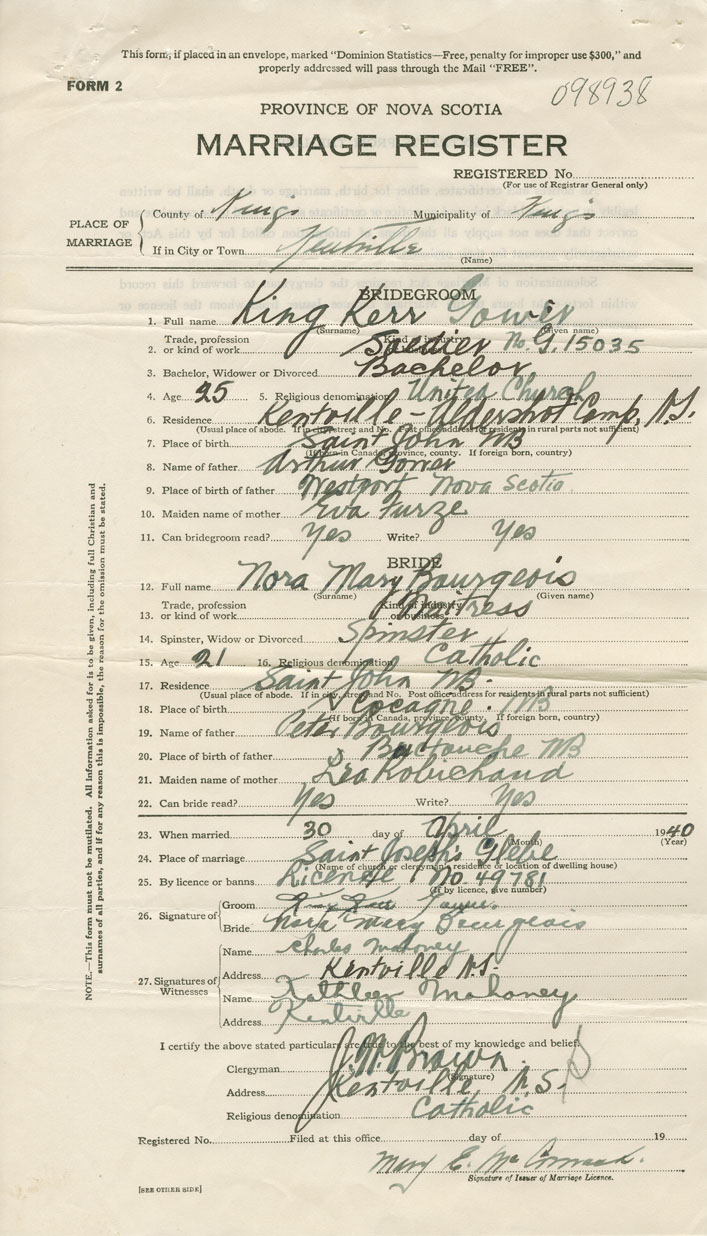 This form, if placed in an envelope, marked "Dominion Statistics—Free, penalty for improper use $300," and
properly addressed will pass through the Mail "FREE".
FORM 2
098938
PROVINCE OF NOVA SCOTIA
MARRIAGE REGISTER
REGISTERED No.
(For use of Registrar General only)
PLACE OF MARRIAGE
County of Kings Municipality of Kings
If in City or Town Kentville
(Name)
BRIDEGROOM
1. Full name King Kerr Gower
(Surname) (Given name)
2. Trade, profession or kind of work Kind of industry or business Soldier No. G. 15035
3. Bachelor, Widower or Divorced Bachelor
4. Age 25 5. Religious denomination United Church
6. Residence Kentville - Aldershot Camp, N.S.
(Usual place of abode. If in city, street and No. Post office address for residents in rural parts not sufficient)
7. Place of birth Saint John NB
(If born in Canada, province, county. If foreign born, country)
8. Name of father Arthur Gower
9. Place of birth of father Westport Nova Scotia
10. Maiden name of mother Eva Furze
11. Can bridegroom read? Yes Write? Yes
BRIDE
12. Full name Nora Mary Bourgeois
(Surname) (Given name)
13. Trade, profession or kind of work Kind of industry or business Waitress
14. Spinster, Widow or Divorced Spinster
15. Age 21 16. Religious denomination Catholic
17. Residence Saint John NB.
(Usual place of abode. If in city, street and No. Post office address for residents in rural parts not sufficient)
18. Place of birth Cocagne. NB
(If born in Canada, province, county. If foreign born, country)
19. Name of father Peter Bourgeois
20. Place of birth of father Buctouche NB
21. Maiden name of mother Lea Robichaud
22. Can bride read? Yes Write? Yes
23. When married 30 day of April 1940
(Month) (Year)
24. Place of marriage Saint Joseph's Glebe
(Name of church or clergyman's residence or location of dwelling house)
25. By licence or banns License No. 49781
(If by licence, give number)
26. Signature of
Groom King Kerr Gower.
Bride Nora Mary Bourgeois
27. Signatures of Witnesses
Name Charles Mahoney
Address Kentville N.S.
Name Kathleen Mahoney
Address Kentville
I certify the above stated particulars are true to the best of my knowledge and belief.
Clergyman J. H. Brown.
(Signature)
Address Kentville, N.S.
Religious denomination Catholic
Registered No. Filed at this office day of 19
Mary E. McCormack.
Signature of Issuer of Marriage Licence.
[SEE OTHER SIDE]
NOTE.—This form must not be mutilated. All Information asked for is to be given, including full Christian and
surnames of all parties, and if for any reason this is impossible, the reason for the omission must be stated.